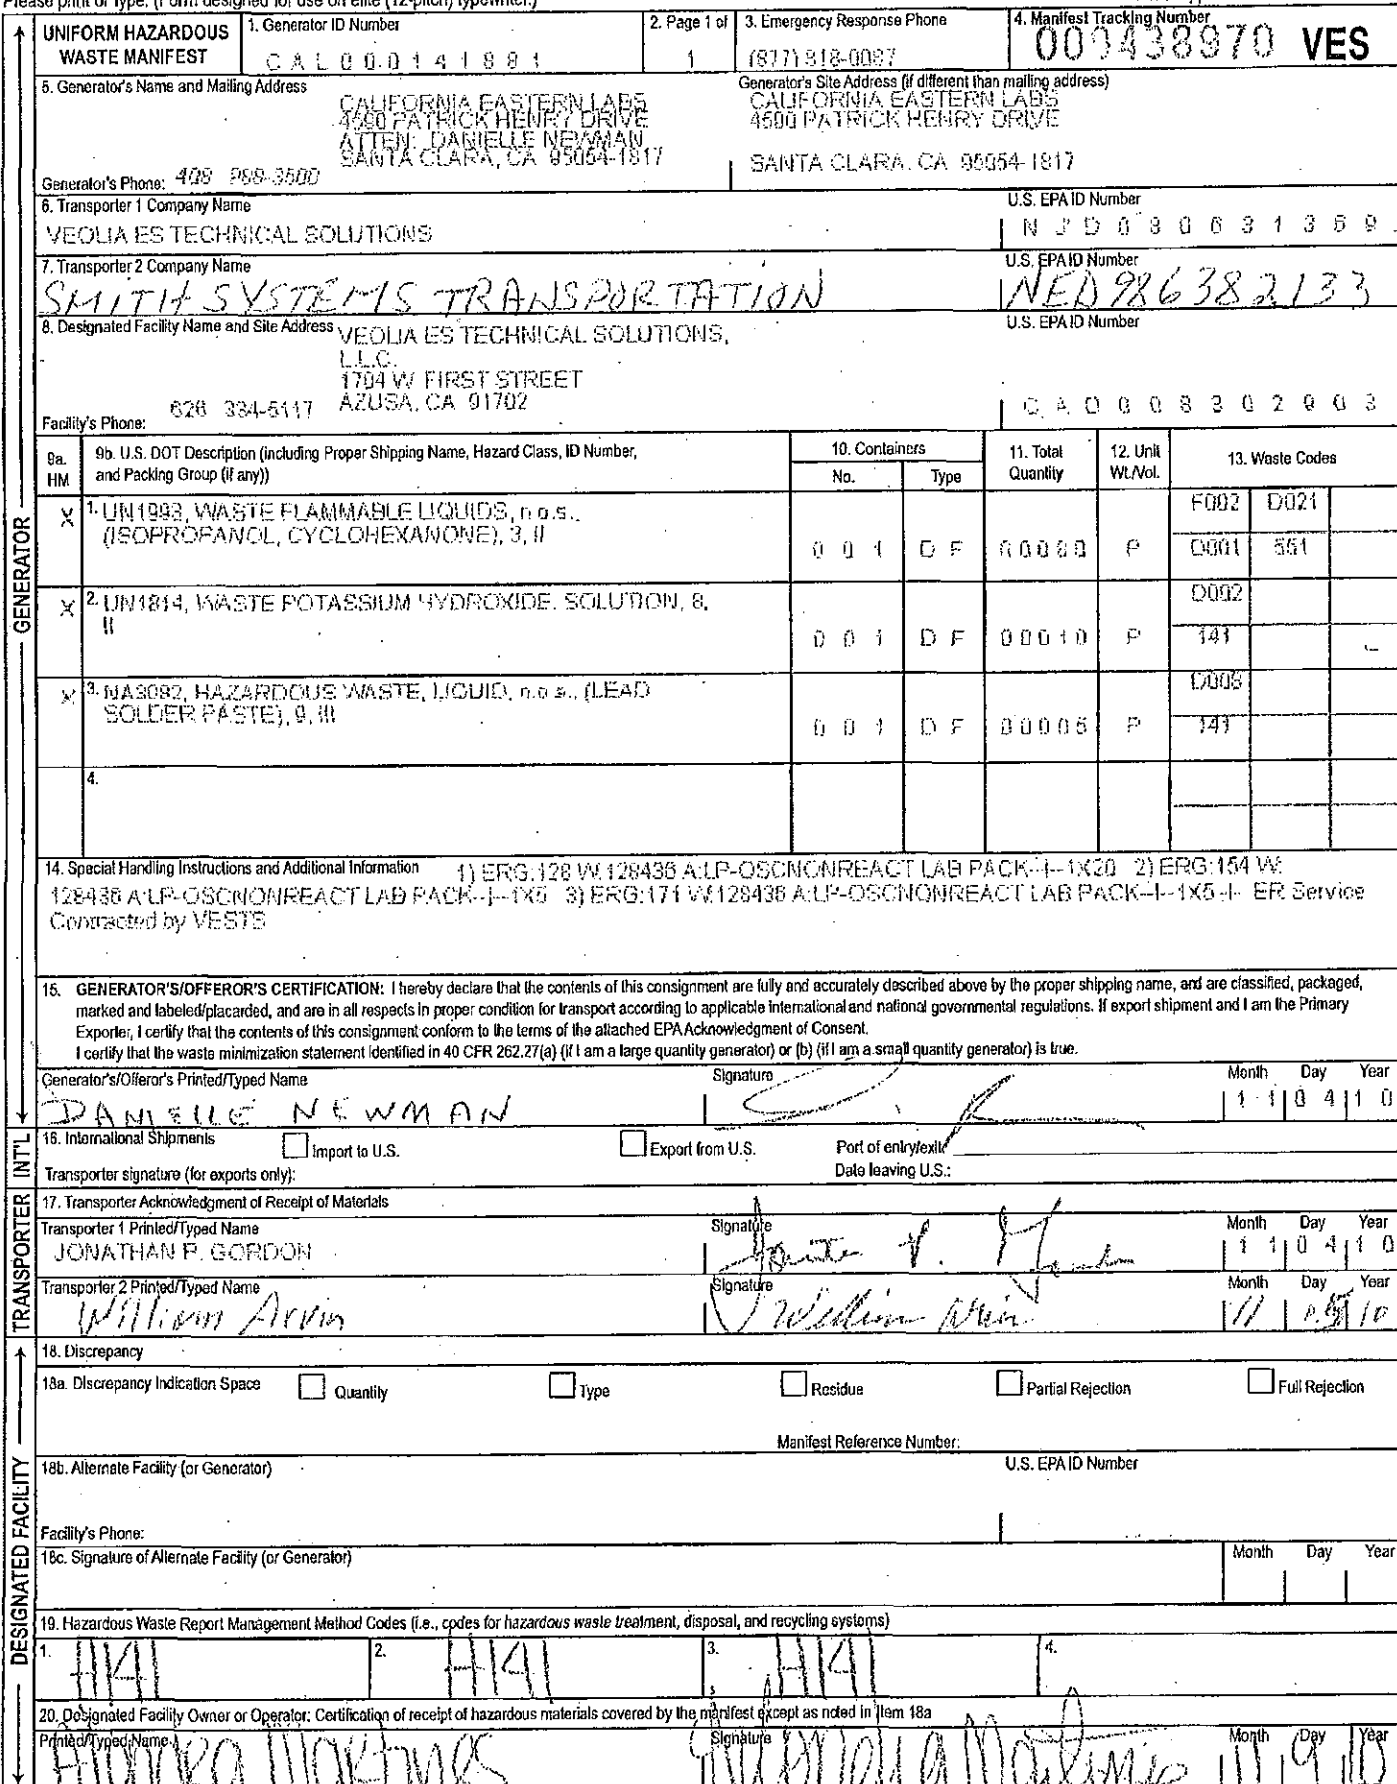 Please print or type. (Form designed for use on elite (12-pitch) typewriter.)
UNIFORM HAZARDOUS WASTE MANIFEST
1. Generator ID Number
CAL000141881
2. Page 1 of
1
3. Emergency Response Phone
(877) 818-0087
4. Manifest Tracking Number
009438970 VES
5. Generator's Name and Mailing Address
CALIFORNIA EASTERN LABS
4590 PATRICK HENRY DRIVE
ATTEN: DANIELLE NEWMAN
SANTA CLARA, CA 95054-1817
Generator's Site Address (if different than mailing address)
CALIFORNIA EASTERN LABS
4590 PATRICK HENRY DRIVE
SANTA CLARA, CA 95054-1817
Generator's Phone: 408 988-3500
6. Transporter 1 Company Name
VEOLIA ES TECHNICAL SOLUTIONS
U.S. EPA ID Number
NJD080631369
7. Transporter 2 Company Name
SMITH SYSTEMS TRANSPORTATION
U.S. EPA ID Number
NED986382133
8. Designated Facility Name and Site Address
VEOLIA ES TECHNICAL SOLUTIONS,
L.L.C.
1704 W. FIRST STREET
AZUSA, CA 91702
U.S. EPA ID Number
CAD008302903
Facility's Phone: 626 334-5117
9a. HM
9b. U.S. DOT Description (including Proper Shipping Name, Hazard Class, ID Number, and Packing Group (if any))
10. Containers
No. Type
11. Total Quantity
12. Unit Wt./Vol.
13. Waste Codes
X 1. UN1993, WASTE FLAMMABLE LIQUIDS, n.o.s., (ISOPROPANOL, CYCLOHEXANONE), 3, II
001 DF P
F002 D021
D001 551
X 2. UN1814, WASTE POTASSIUM HYDROXIDE, SOLUTION, 8, II
001 DF 00010 P
D002
141
X 3. NA3082, HAZARDOUS WASTE, LIQUID, n.o.s., (LEAD SOLDER PASTE), 9, III
001 DF 00005 P
D008
141
4.
14. Special Handling Instructions and Additional Information 1) ERG:128 W:128436 A:LP-OSCNONREACT LAB PACK--I--1X20 2) ERG:154 W:
128436 A:LP-OSCNONREACT LAB PACK--I--1X5 3) ERG:171 W:128436 A:LP-OSCNONREACT LAB PACK--I--1X5-I- ER Service
Contracted by VESTS
15. GENERATOR'S/OFFEROR'S CERTIFICATION: I hereby declare that the contents of this consignment are fully and accurately described above by the proper shipping name, and are classified, packaged,
marked and labeled/placarded, and are in all respects in proper condition for transport according to applicable international and national governmental regulations. If export shipment and I am the Primary
Exporter, I certify that the contents of this consignment conform to the terms of the attached EPA Acknowledgment of Consent.
I certify that the waste minimization statement identified in 40 CFR 262.27(a) (if I am a large quantity generator) or (b) (if I am a small quantity generator) is true.
Generator's/Offeror's Printed/Typed Name
DANIELLE NEWMAN
Signature
Month Day Year
11 04 10
16. International Shipments
Import to U.S.
Export from U.S.
Port of entry/exit:
Transporter signature (for exports only):
Date leaving U.S.:
17. Transporter Acknowledgment of Receipt of Materials
Transporter 1 Printed/Typed Name
JONATHAN P. GORDON
Signature
Month Day Year
11 04 10
Transporter 2 Printed/Typed Name
William Arvin
Signature
William Arvin
Month Day Year
11 10
18. Discrepancy
18a. Discrepancy Indication Space
Quantity
Type
Residue
Partial Rejection
Full Rejection
Manifest Reference Number:
18b. Alternate Facility (or Generator)
U.S. EPA ID Number
Facility's Phone:
18c. Signature of Alternate Facility (or Generator)
Month Day Year
19. Hazardous Waste Report Management Method Codes (i.e., codes for hazardous waste treatment, disposal, and recycling systems)
1. H141
2. H141
3. H141
4.
20. Designated Facility Owner or Operator: Certification of receipt of hazardous materials covered by the manifest except as noted in Item 18a
Printed/Typed Name
Signature
Month Day Year
11 9 10
GENERATOR
INT'L
TRANSPORTER
DESIGNATED FACILITY